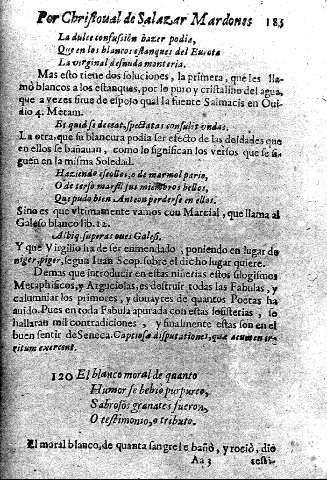 Por Christoual de Salazar Mardones 185
La dulce confusion hazer podia,
Que en los blancos estanques del Eurota
La virginal desnuda monteria.
Mas esto tiene dos soluciones, la primera, que les lla-
mò blancos a los estanques, por lo puro y cristalino del agua,
que a vezes sirue de espejo qual la fuente Salmacis en Oui-
dio 4. Metam.
Et quid se deceat, spectatas consulit vndas.
La otra, que su blancura podia ser efecto de las deidades que
en ellos se bañauan, como lo significan los versos que se si-
guen en la misma Soledad.
Haziendo escollos, o de marmol pario,
O de terso marfil sus miembros bellos,
Que pudo bien Acteon perderse en ellos.
Sino es que vltimamente vamos con Marcial, que llama al
Galeso blanco lib. 12.
Albiq; superas oues Galesi.
Y que Virgilio ha de ser enmendado, poniendo en lugar de
niger, piger, segun Iuan Scop. sobre el dicho lugar quiere.
Demas que introducir en estas niñerias estos silogismos
Metaphisicos, y Arguciolas, es destruir todas las Fabulas, y
calumniar los primores, y donayres de quantos Poetas ha
auido. Pues en toda Fabula apurada con estas sofisterias, se
hallaran mil contradiciones, y finalmente estas son en el
buen sentir de Seneca. Captiosæ disputationes, quæ acumen ir-
ritum exercent.
120 El blanco moral de quanto
Humor se bebiò purpureo,
Sabrosos granates fueron,
O testimonio, o tributo.
El moral blanco, de quanta sangre le bañò, y rociò, dio
Aa 3 testi-